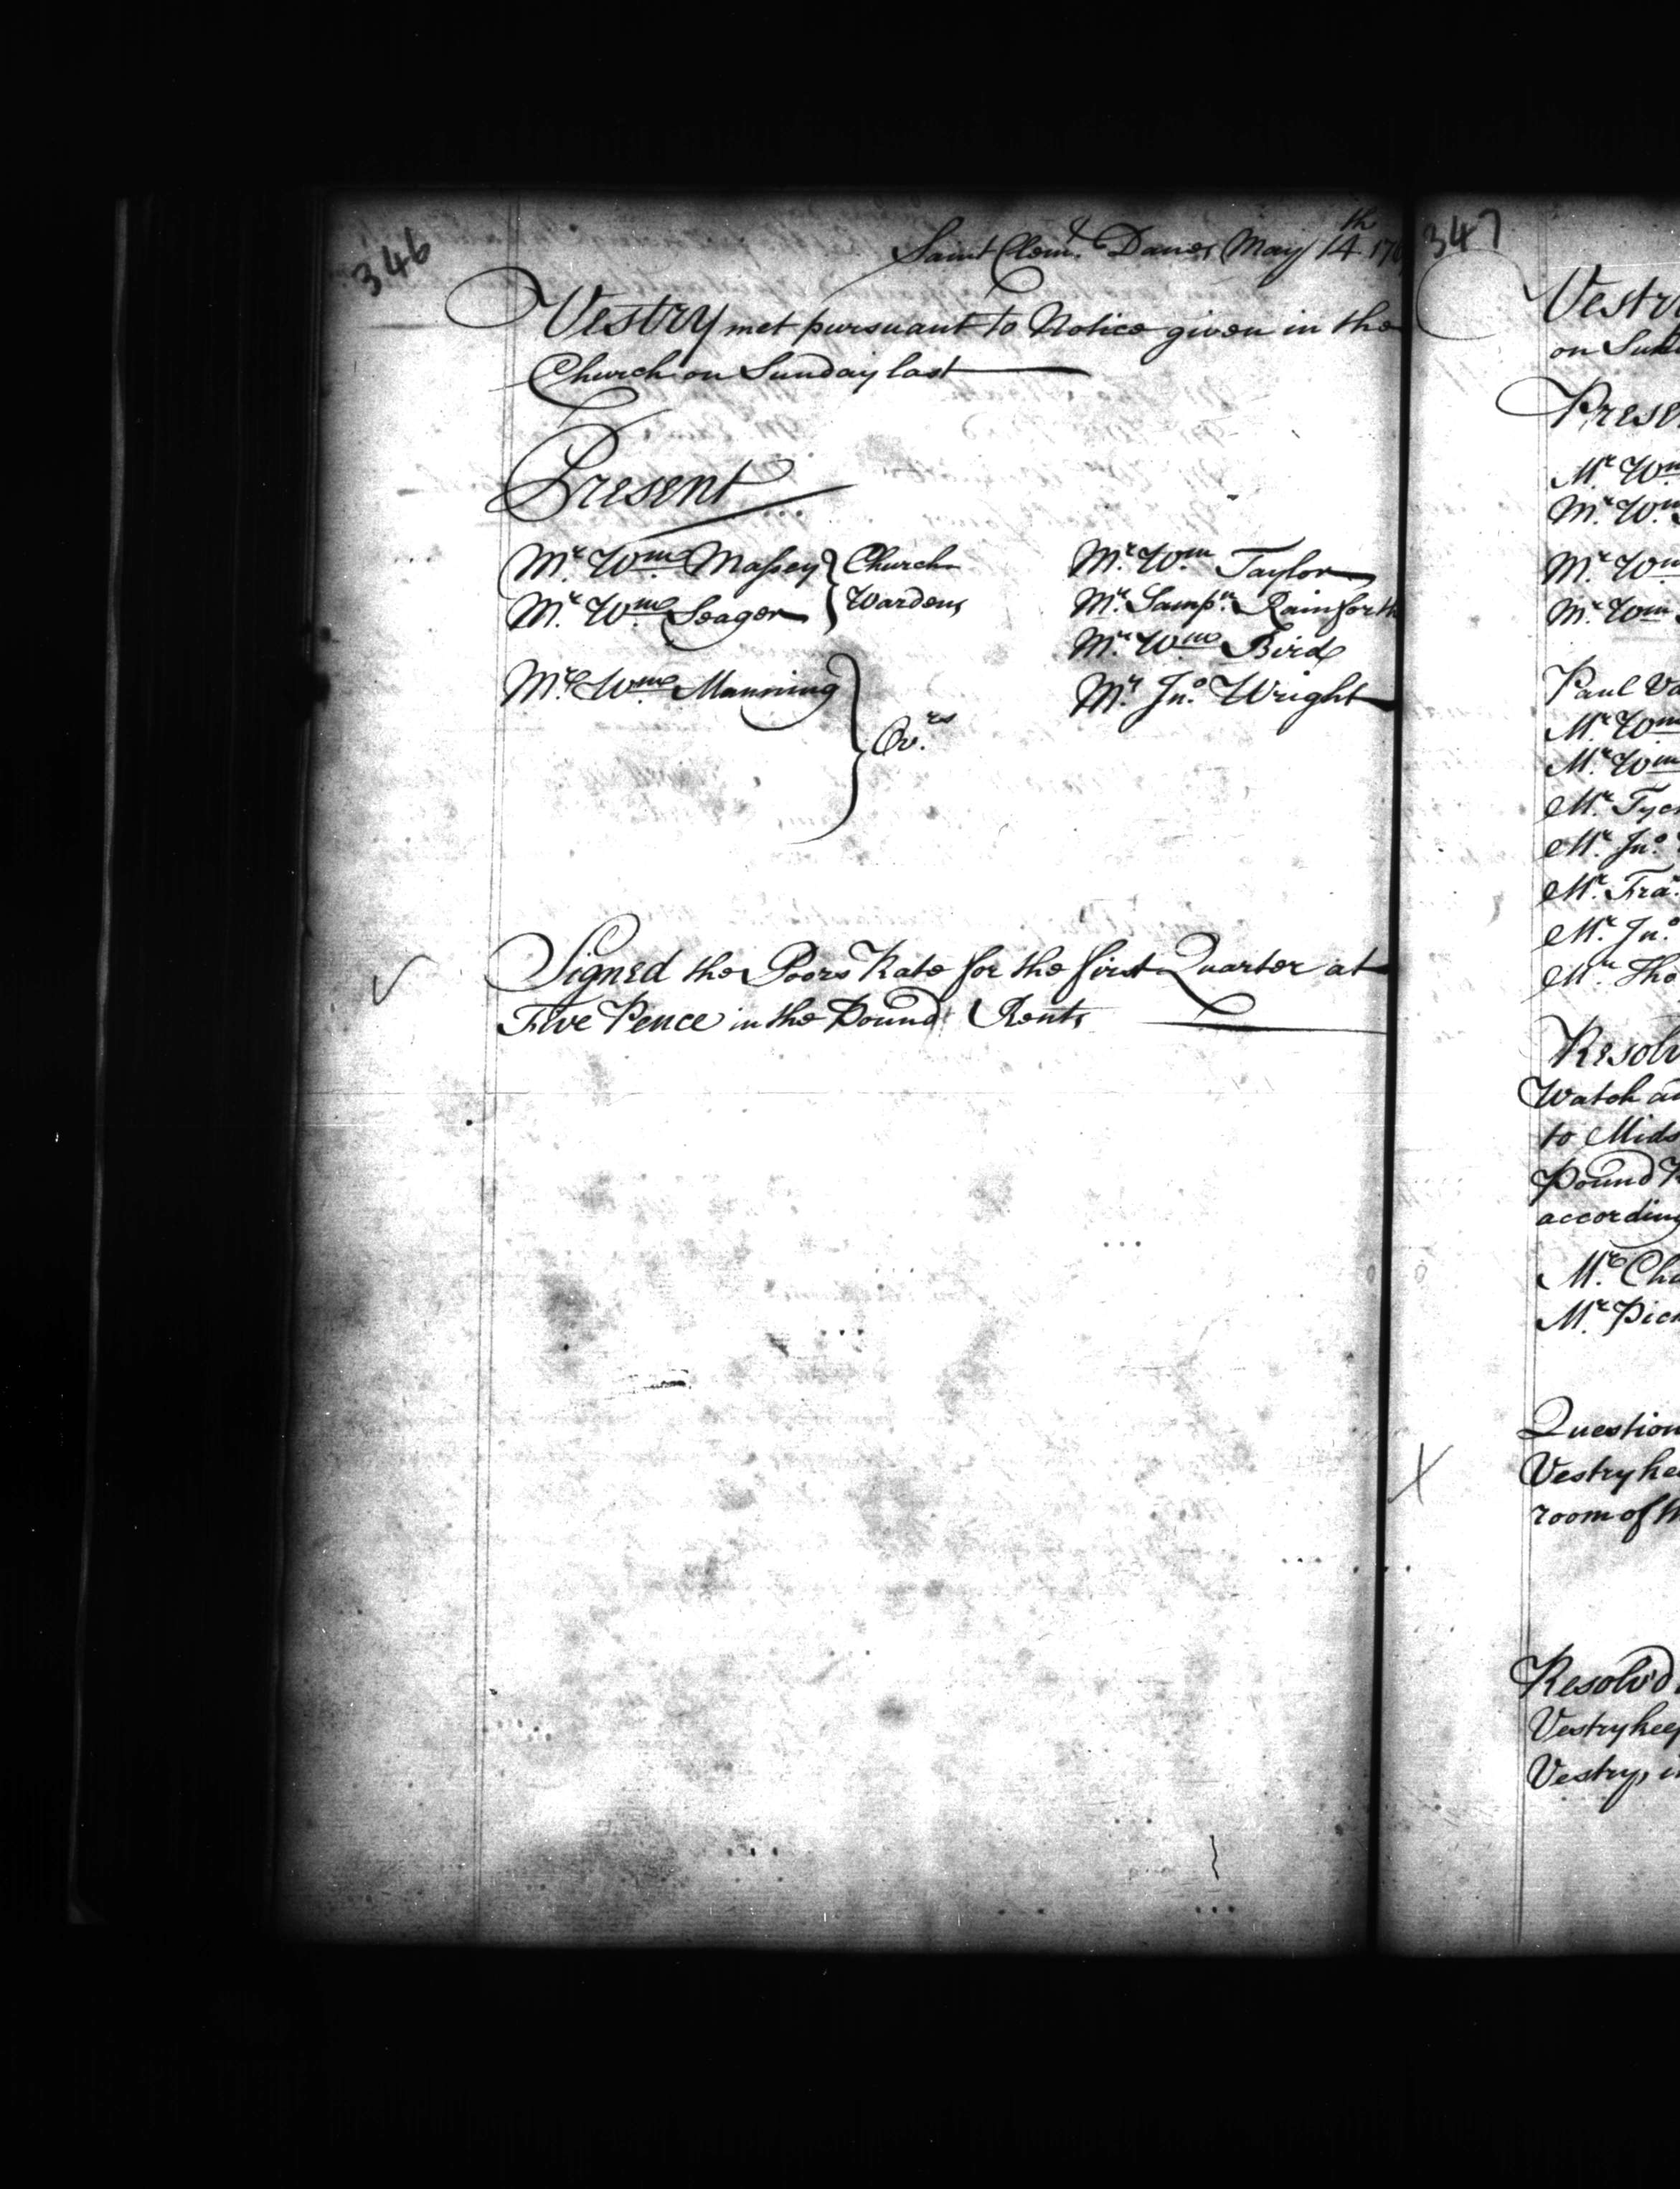 346
Saint Clemt. Danes May 14th. 176
Vestry met pursuant to Notice given in the
Church on Sunday last
Present
Mr. Wm. Massey } Church
Mr. Wm. Seager } Wardens
Mr. Wm. Manning } Ovrs.
Mr. Wm. Taylor
Mr. Sampn. Rainforth
Mr. Wm. Bird
Mr. Jno. Wright
Signed the Poors Rate for the first Quarter at
Five Pence in the Pound Rents
347
Vestr
on Sund
Presen
Mr. Wm.
Mr. Wm.
Mr. Wm.
Mr. Wm.
Paul Va
Mr. Wm.
Mr. Wm.
Mr. Tych
Mr. Jno.
Mr. Fra.
Mr. Jno.
Mr. Tho
Resolv
Watch an
to Mids
Pound R
according
Mr. Cha
Mr. Pick
Question
Vestry kee
room of M
Resolv'd
Vestry keep
Vestry, in